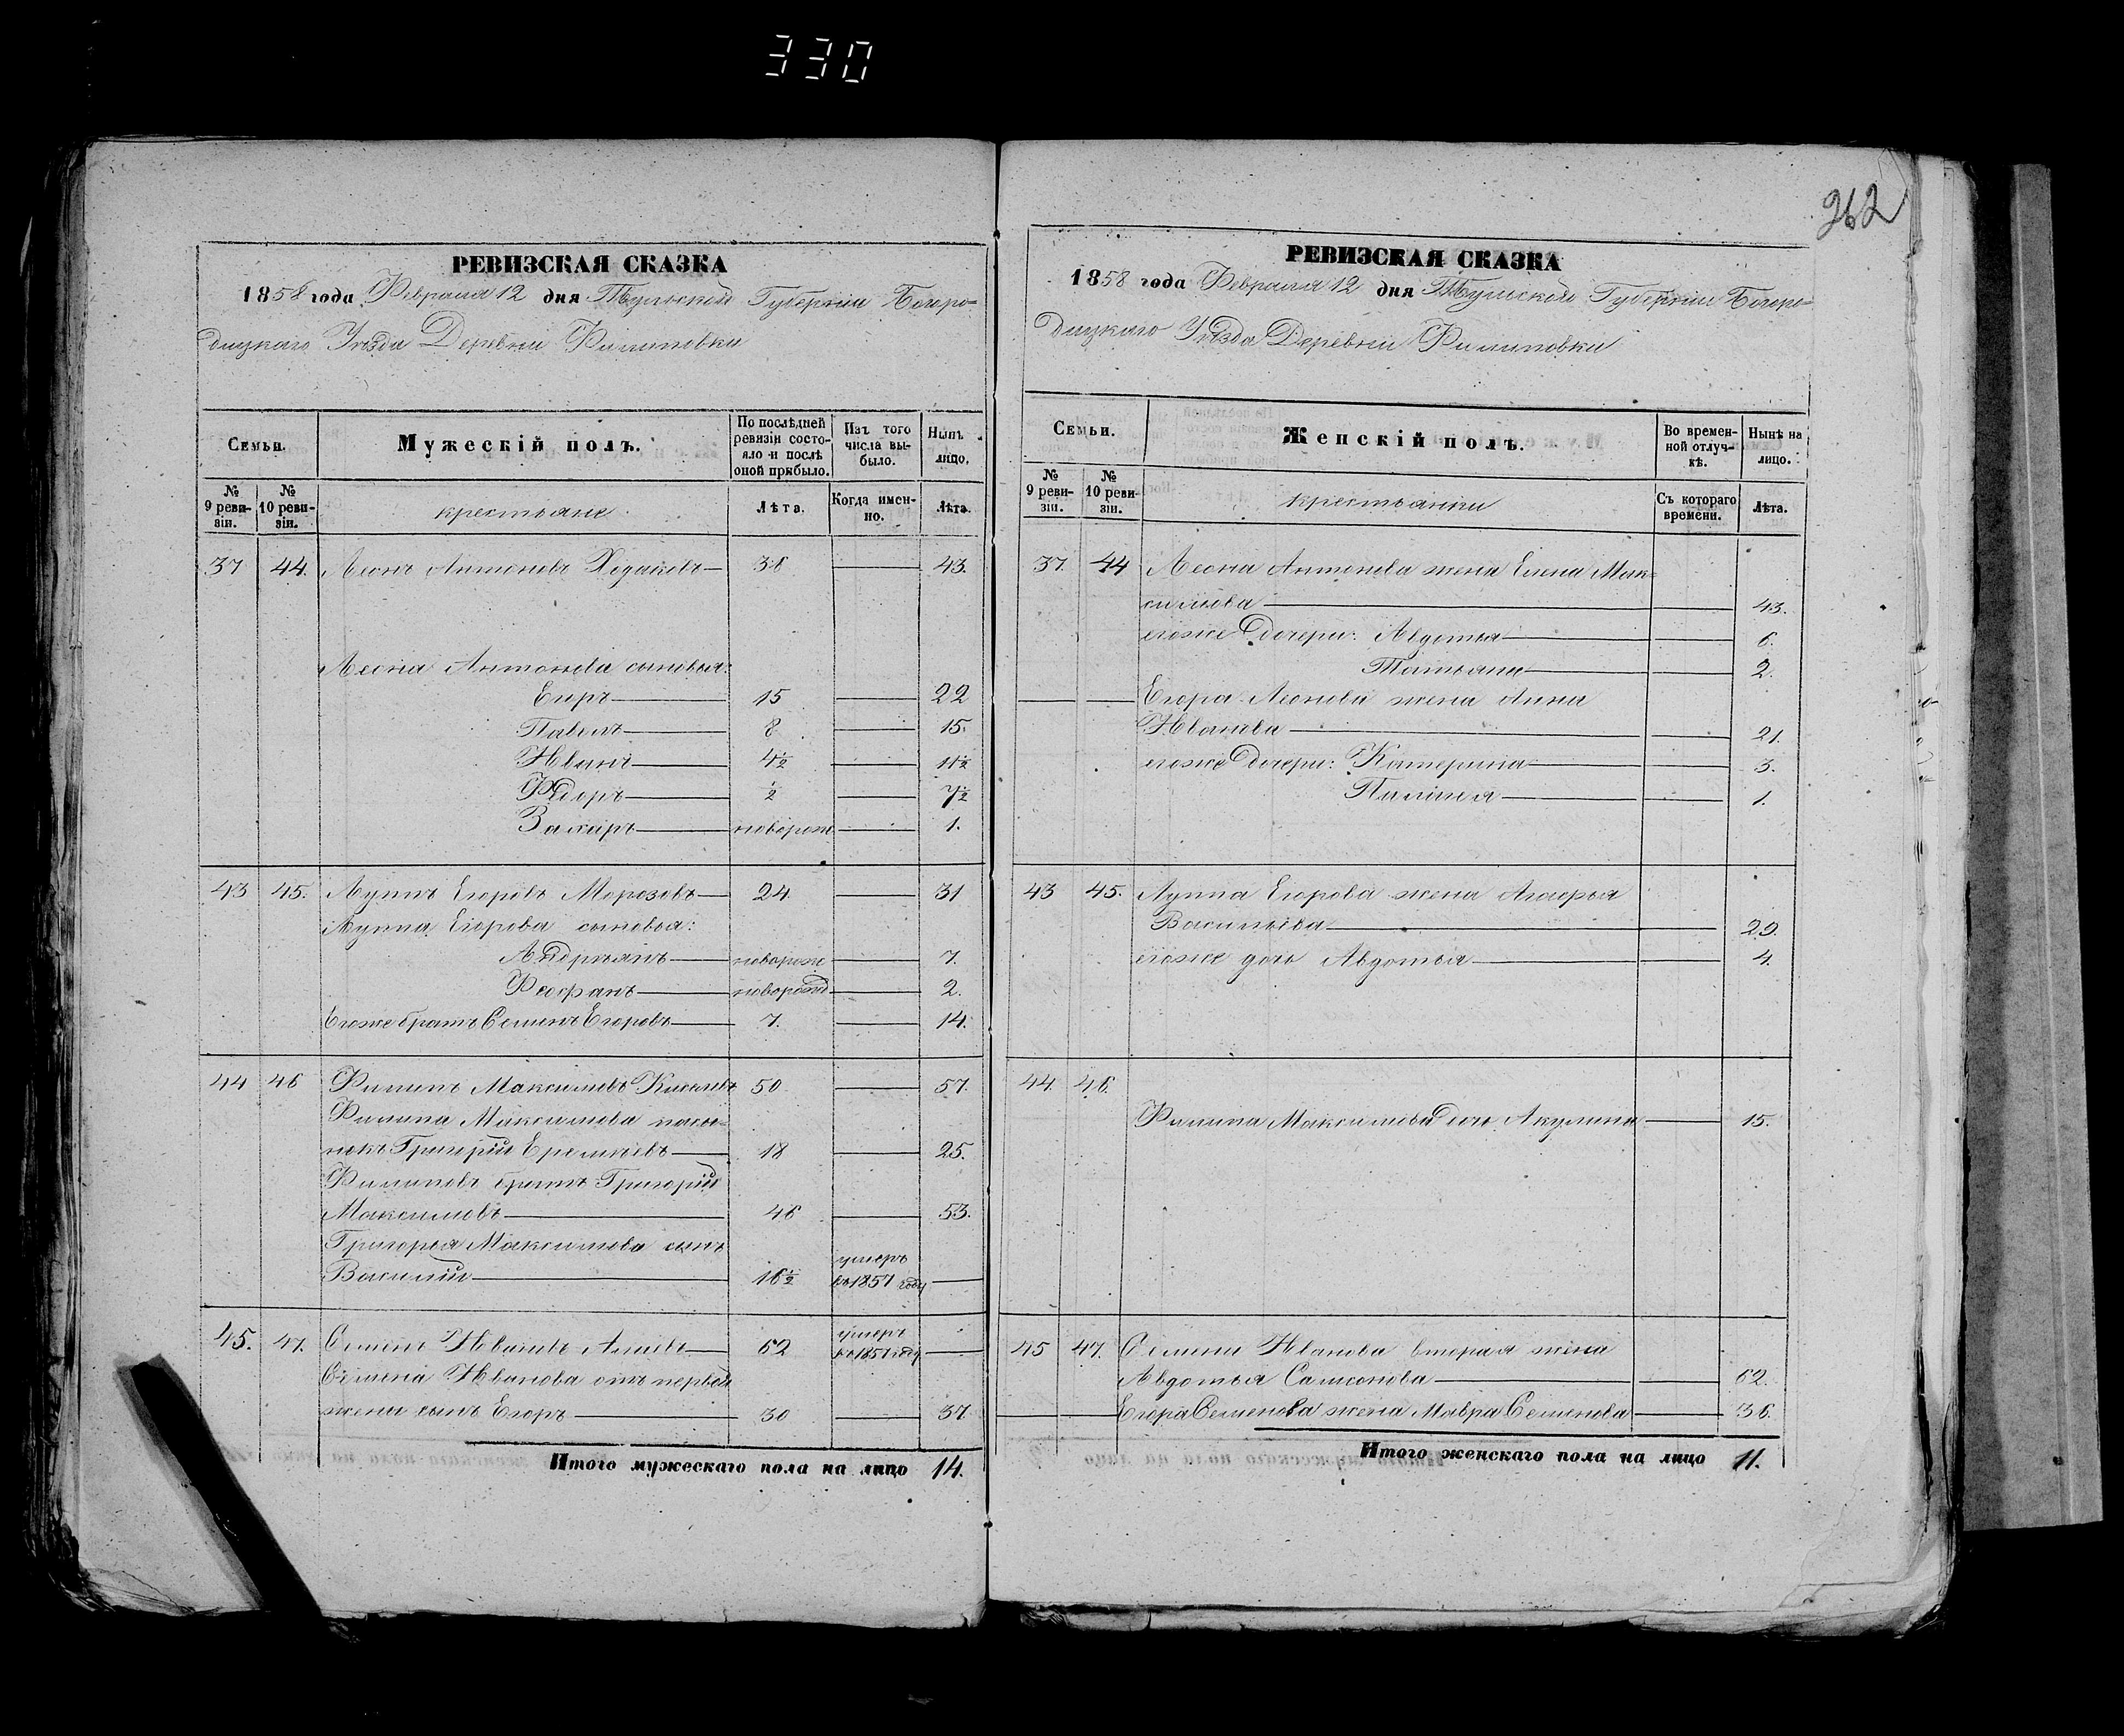 330
262
РЕВИЗСКАЯ СКАЗКА
1858 года Февраля 12 дня Тульской Губернiи Богоро-
дицкаго Уѣзда Деревни Филиповки
Семьи.
Мужескiй полъ.
По послѣдней ревизiи состо-яло и послѣ оной прибыло.
Изъ того числа вы-было.
Нынѣ лицо.
№ 9 реви-зiи.
№ 10 реви-зiи.
крестьяне
Лѣта.
Когда имен-но.
Лѣта.
37 44. Леонъ Антоновъ Ходаковъ 36 43.
Леона Антонова сыновья:
Егоръ 15 22
Павелъ 8 15.
Иванъ 4½ 11½
Ѳедоръ ½ 7½
Захаръ новорож 1.
43 45. Луппъ Егоровъ Морозовъ 24. 31
Луппа Егорова сыновья:
Андреянъ новорож 7.
Феофанъ новорожд 2.
Егоже братъ Семенъ Егоровъ 7. 14.
44 46 Филипъ Максимовъ Киселевъ 50 57.
Филипа Максимова пасы-
нокъ Григорiй Еремѣевъ 18 25.
Филиповъ братъ Григорiй
Максимовъ 46 53.
Григорья Максимова сынъ
Василiй 16½ умеръ въ 1857 году
45. 47. Семенъ Ивановъ 62 умеръ въ 1857 году
Семена Иванова отъ первой
жены сынъ Егоръ 30 37
Итого мужескаго пола на лицо 14.
РЕВИЗСКАЯ СКАЗКА
1858 года Февраля 12 дня Тульской Губернiи Богоро-
дицкаго Уѣзда Деревни Филиповки
Семьи.
Женскiй полъ.
Во времен-ной отлуч-кѣ.
Нынѣ на лицо.
№ 9 реви-зiи.
№ 10 реви-зiи.
крестьянки
Съ котораго времени.
Лѣта.
37. 44 Леона Антонова жена Елена Мак-
симова 43.
егоже дочери: Авдотья 6.
Татьяна 2.
Егора Леонова жена Анна
Иванова 21.
егоже дочери: Катерина 3.
Пелагея 1.
43 45. Луппа Егорова жена Агафья
Васильева 29.
егоже дочь Авдотья 4.
44. 46.
Филипа Максимова дочь Акулина 15.
45 47. Семена Иванова вторая жена
Авдотья Самсонова 62.
Егора Семенова жена Мавра Семенова 36.
Итого женскаго пола на лицо 11.